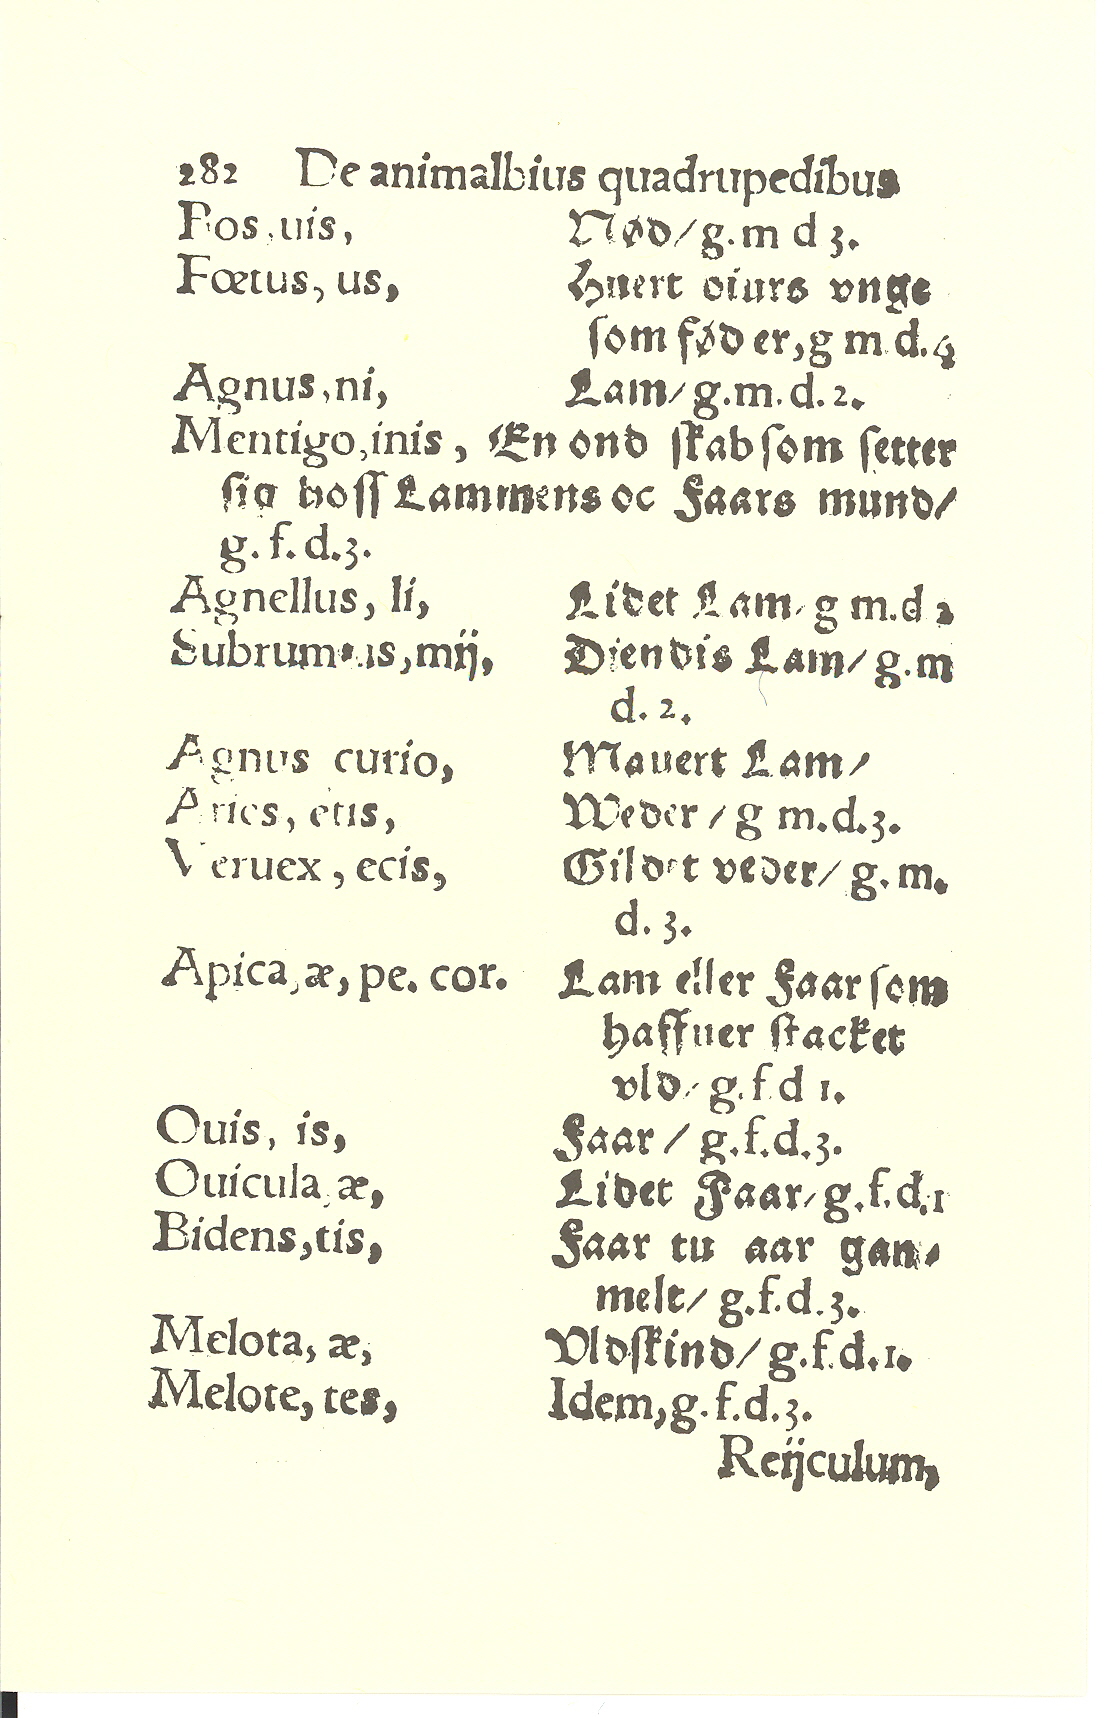 282 De animalbius quadrupedibus
Bos, uis, Nød/ g. m d 3.
Fœtus, us, Huert diurs vnge
som føder, g m d. 4
Agnus, ni, Lam/ g. m. d. 2.
Mentigo, inis, En ond skab som setter
sig hoss Lammens oc Faars mund/
g. f. d. 3.
Agnellus, li, Lidet Lam/ g m. d 2
Subrumius, mij, Diendis Lam/ g. m
d. 2.
Agnus curio, Mauert Lam/
Aries, etis, Weder / g m. d. 3.
Veruex, ecis, Gildet veder/ g. m.
d. 3.
Apica, æ, pe. cor. Lam eller Faar som
haffuer stacket
vld/ g. f d 1.
Ouis, is, Faar / g. f. d. 3.
Ouicula, æ, Lidet Faar/ g. f. d. 1
Bidens, tis, Faar tu aar gam/
melt/ g. f. d. 3.
Melota, æ, Vldskind/ g. f. d. 1.
Melote, tes, Idem, g. f. d. 3.
Reijculum,